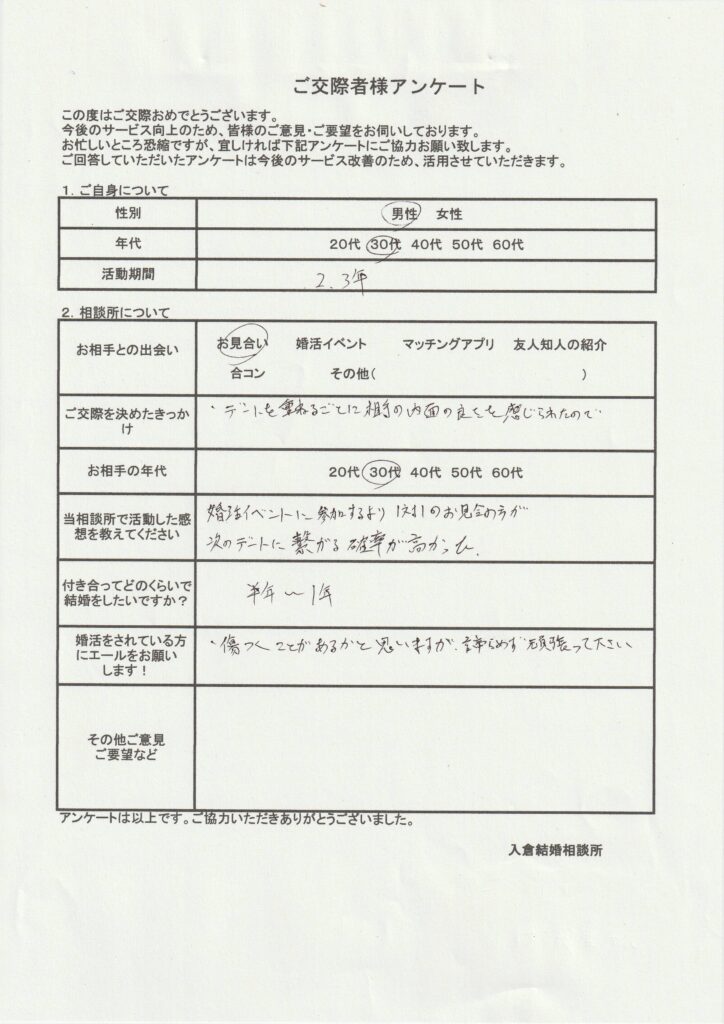 ご交際者様アンケート
この度はご交際おめでとうございます。
今後のサービス向上のため、皆様のご意見・ご要望をお伺いしております。
お忙しいところ恐縮ですが、宜しければ下記アンケートにご協力お願い致します。
ご回答していただいたアンケートは今後のサービス改善のため、活用させていただきます。
1．ご自身について
性別 男性 女性
年代 20代 30代 40代 50代 60代
活動期間 2、3年
2．相談所について
お相手との出会い お見合い 婚活イベント マッチングアプリ 友人知人の紹介
合コン その他( )
ご交際を決めたきっかけ
・デートを重ねるごとに相手の内面の良さを感じられたので
お相手の年代 20代 30代 40代 50代 60代
当相談所で活動した感想を教えてください
婚活イベントに参加するより1対1のお見合の方が
次のデートに繋がる確率が高かった。
付き合ってどのくらいで結婚をしたいですか？
半年〜1年
婚活をされている方にエールをお願いします！
・傷つくことがあるかと思いますが、諦らめず頑張って下さい
その他ご意見
ご要望など
アンケートは以上です。ご協力いただきありがとうございました。
入倉結婚相談所